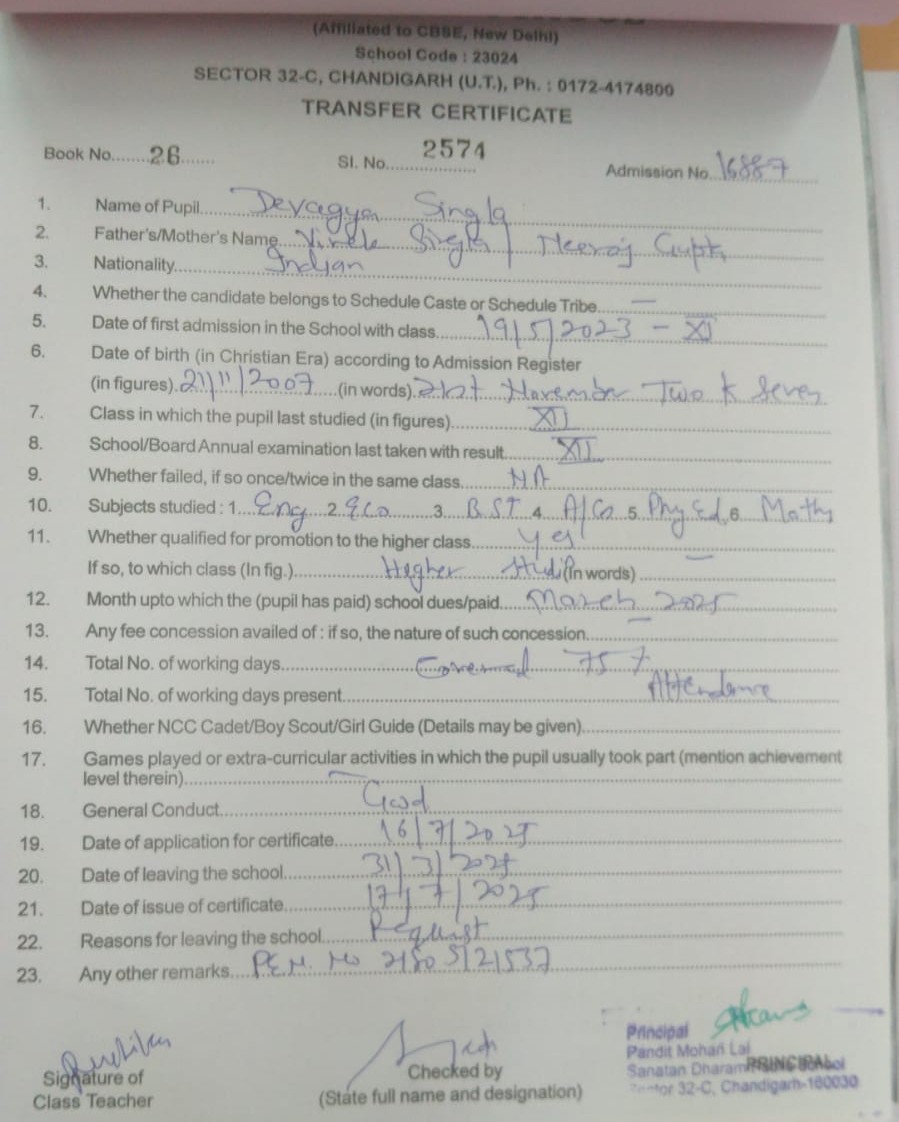 (Affiliated to CBSE, New Delhi)
School Code : 23024
SECTOR 32-C, CHANDIGARH (U.T.), Ph. : 0172-4174800
TRANSFER CERTIFICATE
Book No....... 26 ....... Sl. No. 2574 Admission No. 16887
1. Name of Pupil.... Devagya Singla
2. Father's/Mother's Name.... Singla / Neeraj Gupta
3. Nationality.... Indian
4. Whether the candidate belongs to Schedule Caste or Schedule Tribe.... —
5. Date of first admission in the School with class.... 19/5/2023 – XI
6. Date of birth (in Christian Era) according to Admission Register
(in figures). 21/11/2007 ....(in words). 21st November Two K Seven
7. Class in which the pupil last studied (in figures).... XII
8. School/Board Annual examination last taken with result.... XII
9. Whether failed, if so once/twice in the same class.... NA
10. Subjects studied : 1.... Eng 2. Eco 3. BST 4. A/Cs 5. Phy Ed. 6. Maths
11. Whether qualified for promotion to the higher class.... Yes
If so, to which class (In fig.).... Higher (In words) .... —
12. Month upto which the (pupil has paid) school dues/paid.... March 2025
13. Any fee concession availed of : if so, the nature of such concession.... —
14. Total No. of working days.... 757
15. Total No. of working days present.... Attendance
16. Whether NCC Cadet/Boy Scout/Girl Guide (Details may be given)....
17. Games played or extra-curricular activities in which the pupil usually took part (mention achievement
level therein).... —
18. General Conduct.... Good
19. Date of application for certificate.... 16/7/2025
20. Date of leaving the school.... 31/3/2025
21. Date of issue of certificate.... 17/7/2025
22. Reasons for leaving the school.... Request
23. Any other remarks.... P.E.N. No
Principal
Pandit Mohan Lal
Sanatan Dharam
PRINCIPAL
32-C, Chandigarh-160030
Signature of
Class Teacher
Checked by
(State full name and designation)